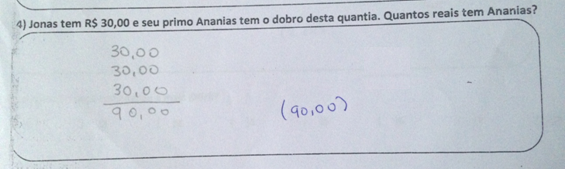 4) Jonas tem R$ 30,00 e seu primo Ananias tem o dobro desta quantia. Quantos reais tem Ananias?
30,00
30,00
30,00
90,00
(90,00)